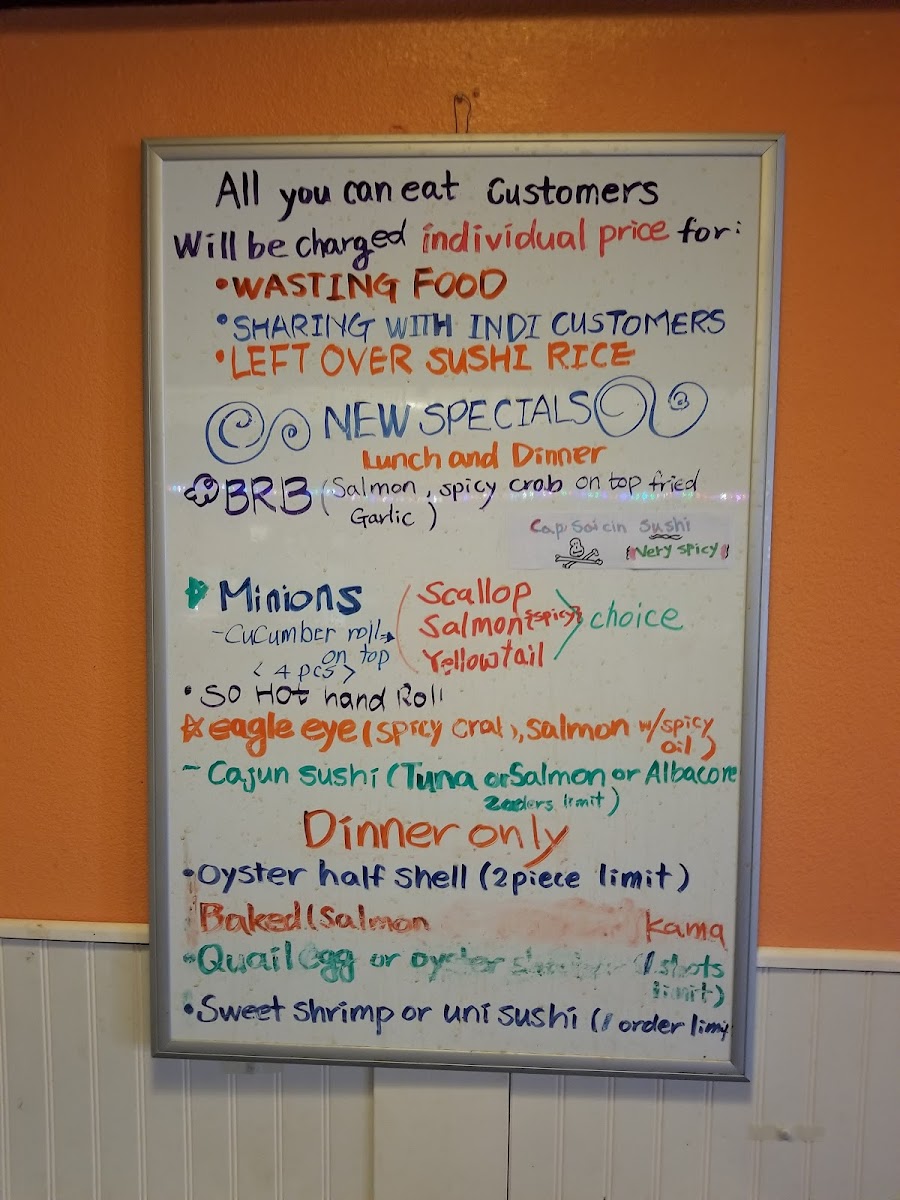 All you can eat Customers
Will be charged individual price for:
•WASTING FOOD
•SHARING WITH INDI CUSTOMERS
•LEFT OVER SUSHI RICE
NEW SPECIALS
Lunch and Dinner
BRB (Salmon, spicy crab on top fried
Garlic)
Capsaicin Sushi
(Very spicy)
Minions
-Cucumber roll
on top
< 4 pcs >
Scallop
Salmon {spicy}
Yellowtail
choice
•SO HOT hand Roll
☆ eagle eye (spicy crab), salmon w/spicy
oil)
- Cajun sushi (Tuna or Salmon or Albacore
limit)
Dinner only
•Oyster half shell (2 piece limit)
Baked (Salmon Kama
•Quail egg or oyster (1 shots
limit)
•Sweet shrimp or uni sushi (1 order limi